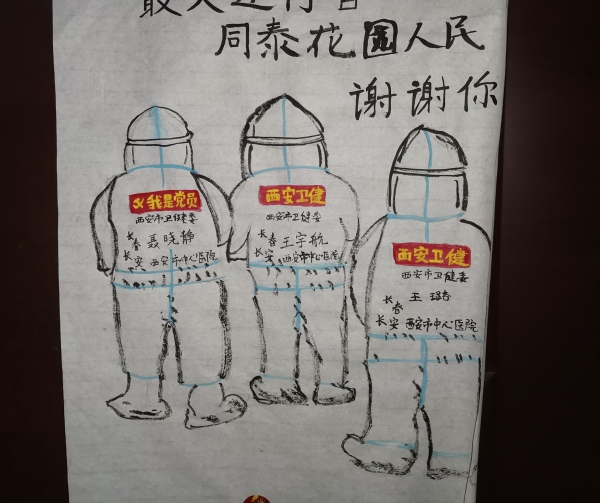 最美逆行者
同泰花园人民
谢谢你
我是党员
西安市卫健委
长春 聂晓静
长安 西安市中心医院
西安卫健
西安市卫健委
长春 王宇航
长安 西安市中心医院
西安卫健
西安市卫健委
长春 王璐春
长安 西安市中心医院